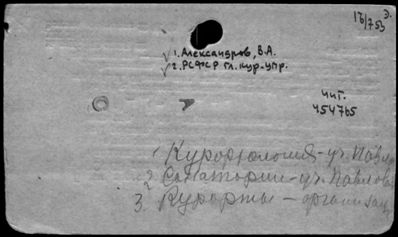 16/753 Э.
1. Александров, В.А.
2. РСФСР Гл. кур. упр.
Чит.
454765
1. Курортология - уч. Павло
2 Санатории - уч. Павлова
3. Курорты - организац